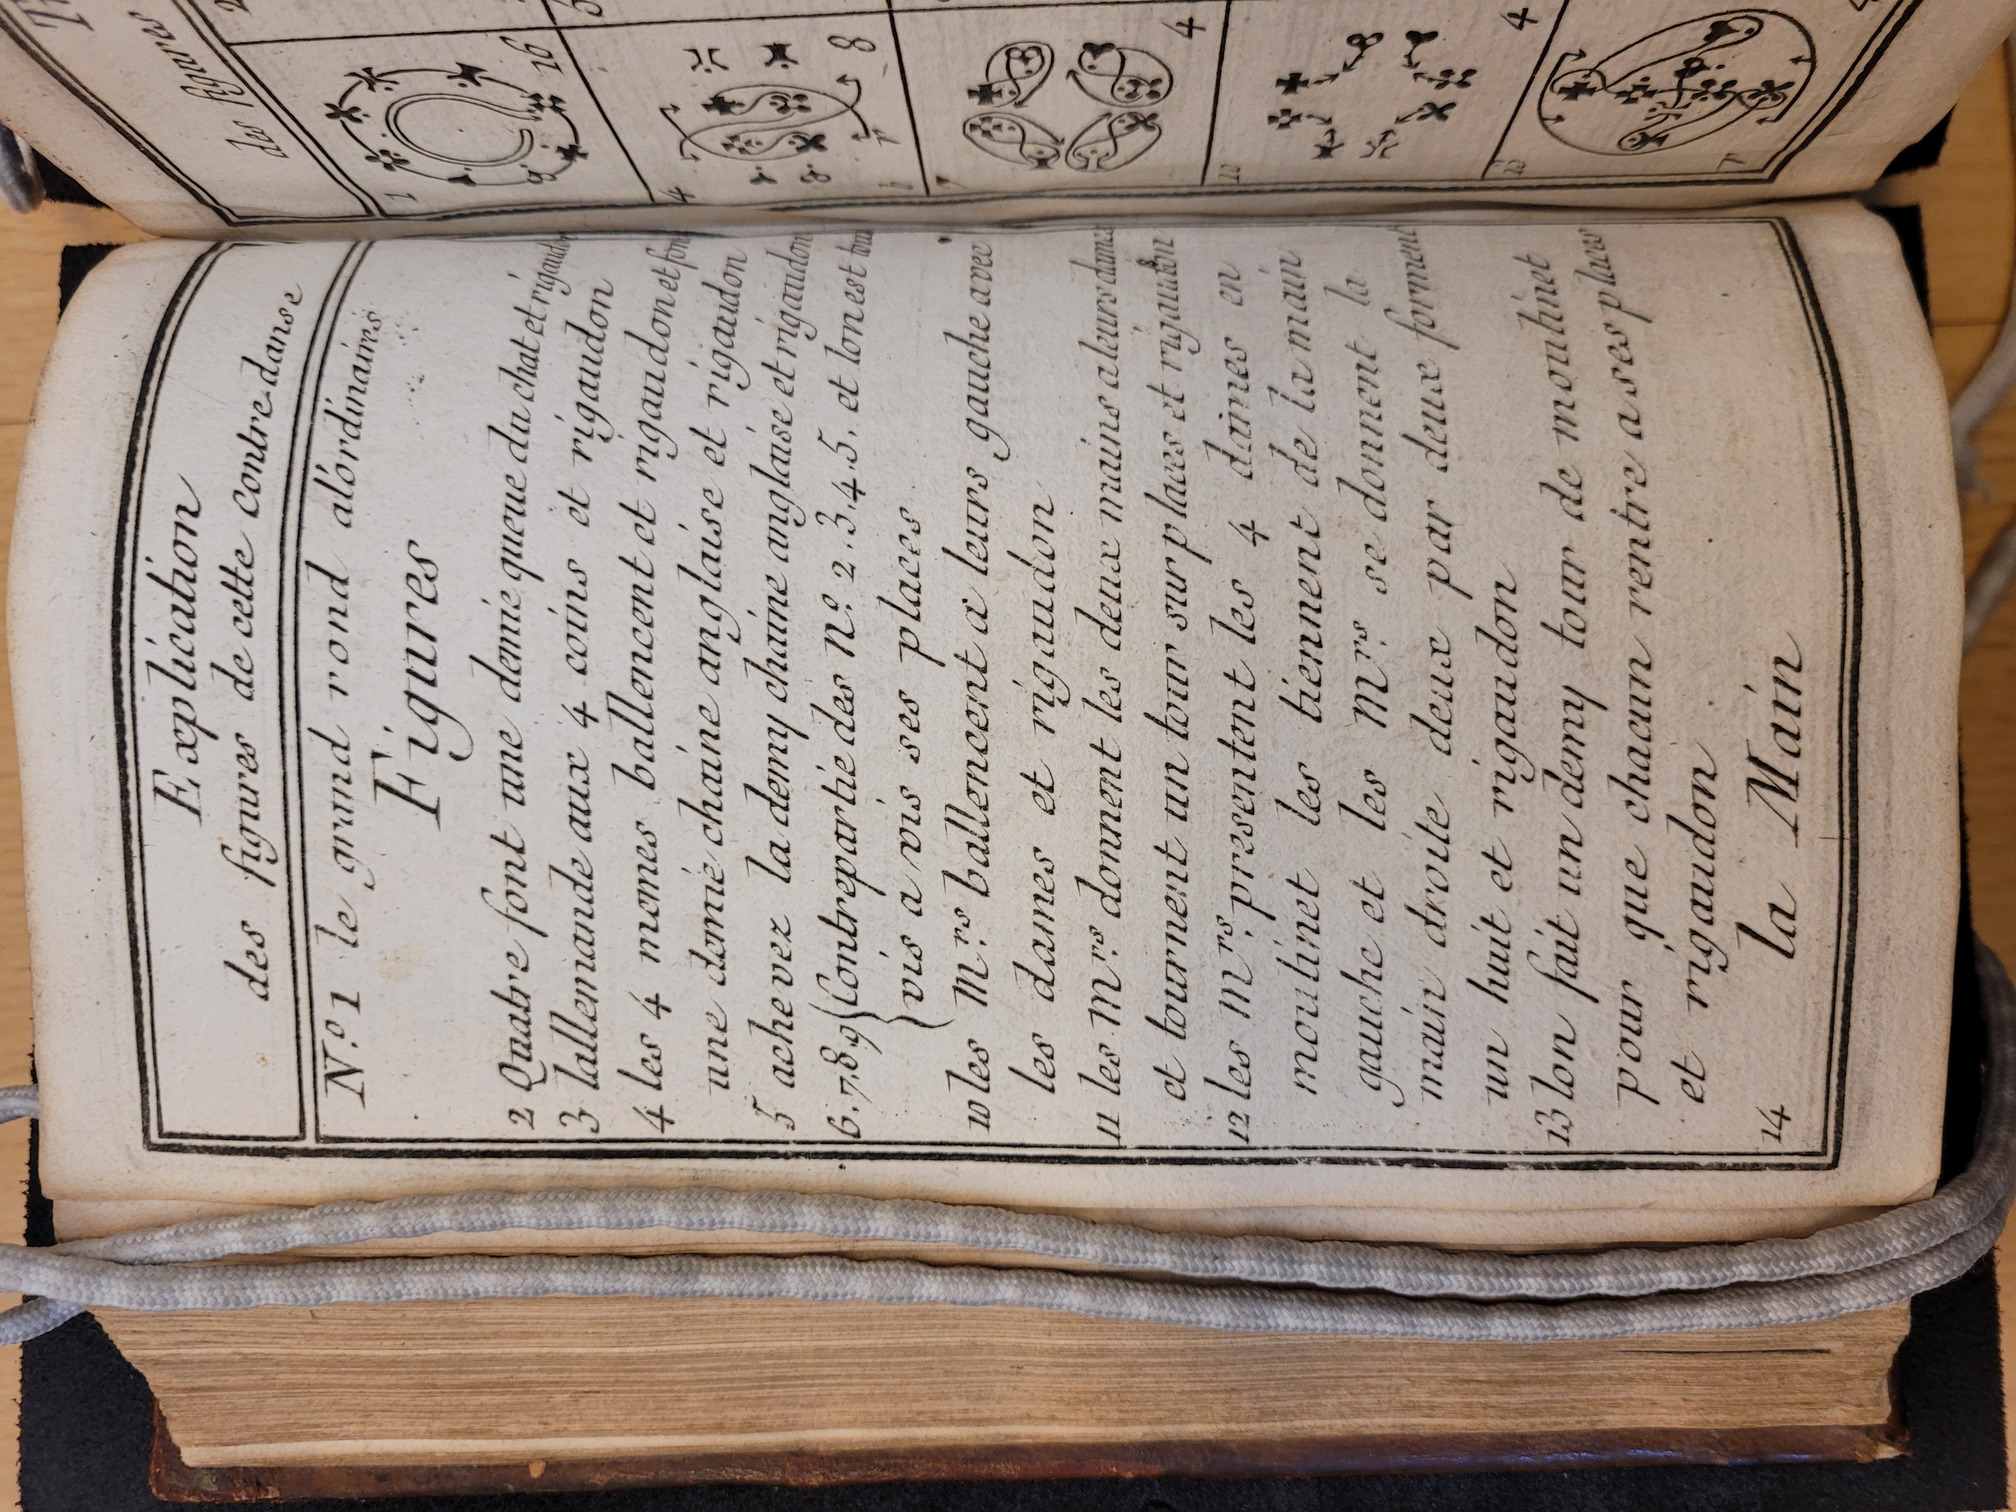 Explication
des figures de cette contredanse
N.º 1 le grand rond alórdinaires
Figures
2 Quatre font une demie queue du chat et rigaudon
3 lallemande aux 4 coins et rigaudon
4 les 4 momes ballencent et rigaudon et font
une demie chaine anglaise et rigaudon
5 achevez la demy chaine anglaise et rigaudon
6. 7. 8. 9 { Contrepartie des n.º 2. 3. 4. 5. et lon est
vis a vis ses places
10 les M.rs ballencent a leurs gauche avec
les dames et rigaudon
11 les M.rs donnent les deux mains a leurs dames
et tournent un tour sur places et rigaudon
12 les M.rs presentent les 4 dames en
moulinet les tiennent de la main
gauche et les M.rs se donnent la
main droite deux par deux forment
un huit et rigaudon
13 lon fait un demy tour de moulinet
pour que chacun rentre a ses places
et rigaudon
14 la Main
des figures
1 16
4 8
7 4
10 4